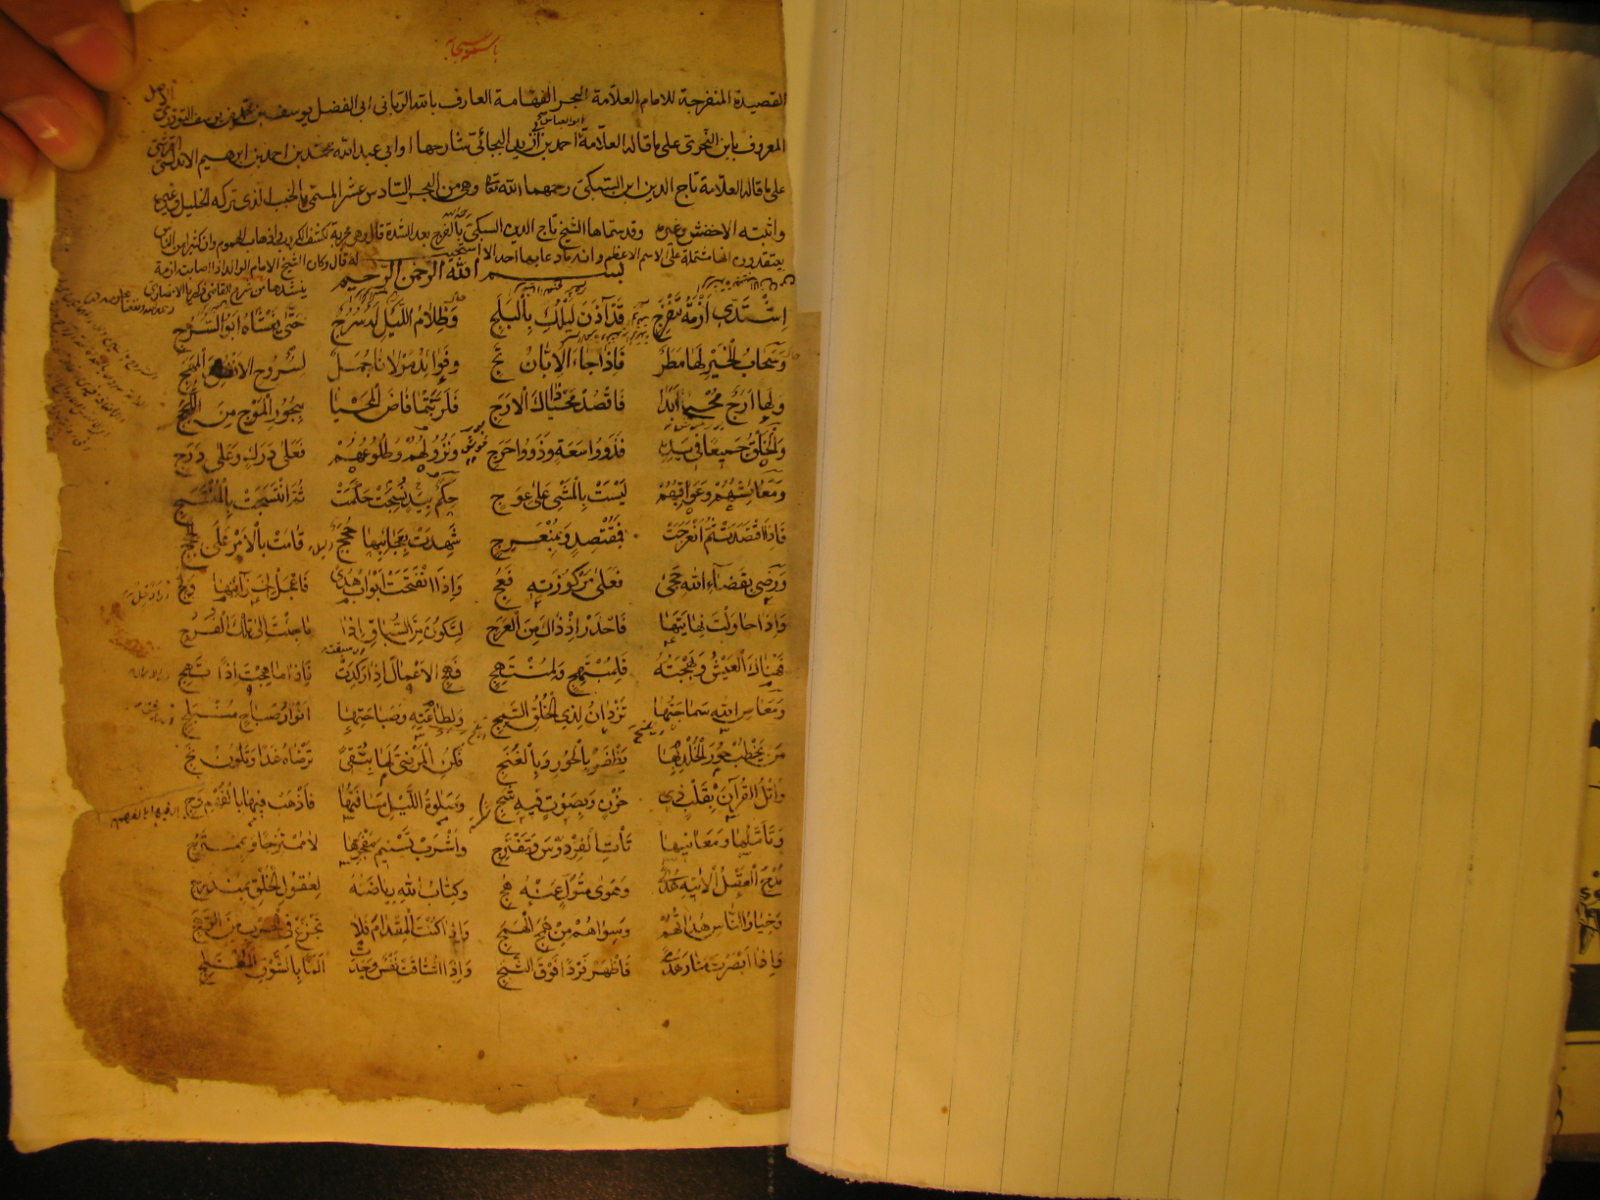 باسمه سبحانه
القصيدة المنفرجة للامام العلّامة البحر الفهامة العارف بالله الرّبانى ابى الفضل يوسف بن محمد بن يوسف التوزرى
المعروف بابن النّحوى على ما قاله العلّامة احمد بن ابى زيد البجائى شارحها او ابى عبد الله محمّد بن احمد بن ابرهيم الاندلسى القرشى
على ما قاله العلّامة تاج الدين ابن السّبكى رحمهما الله تعا وهى من البحر السّادس عشر المسمّى بالخبب الّذى تركه الخليل وغيره
واثبته الاخفش وغيره وقد سمّاها الشيخ تاج الدين السبكى بالفرج بعد الشدة قال وهى مجربة لكشف الكروب واذهاب الهموم وان كثيرا من الناس
يعتقدون انها مشتملة على الاسم الاعظم وانه ما دعا بها احد الا استجيب له قال وكان الشيخ الامام الوالد اذا اصابت ازمة
ينشدها من شرح القاضى زكريا الانصارى
بسم الله الرّحمن الرّحيم
اِشْتَدّى اَزْمَةُ تَنْفَرِجى قَدْ آذَنَ لَيْلُكِ بِالْبَلَجِ وَظَلامُ اللَّيْلِ لَهُ سُرُجٌ حَتّى يَغْشَاهُ اَبُو السُّرُجِ
وَسَحَابُ الْخَيْرِ لَهَا مَطَرٌ فَاِذَا جَاءَ الْاِبَّانُ تَجِ وَفَوَائِدُ مَوْلَانَا جُمَلٌ لِسُرُوحِ الْاَنْفُسِ وَالْمُهَجِ
وَلَهَا اَرَجٌ مُحْيٍ اَبَدًا فَاقْصُدْ مَحْيَا ذَاكَ الْاَرَجِ فَلَرُبَّتَمَا فَاضَ الْمَحْيَا بِبُحُورِ الْمَوْجِ مِنَ اللُّجَجِ
وَالْخَلْقُ جَمِيعًا فى يَدِهِ فَذَوُوا سَعَةٍ وَذَوُوا حَرَجِ وَنُزُولُهُمُ وَطُلُوعُهُمُ فَعَلى دَرَكٍ وَعَلى دَرَجِ
وَمَعَائِشُهُمْ وَعَوَاقِبُهُمْ لَيْسَتْ بِالْمَشْىِ عَلى عِوَجِ حِكَمٌ نُسِجَتْ بِيَدٍ حَكَمَتْ ثُمَّ انْتَسَجَتْ بِالْمُنْتَسِجِ
فَاِذَا اقْتَصَدَتْ ثُمَّ انْعَرَجَتْ فَبِمُقْتَصِدٍ وَبِمُنْعَرِجِ شَهِدَتْ بِعَجَائِبِهَا حُجَجٌ قَامَتْ بِالْاَمْرِ عَلَى الْحِجَجِ
وَرِضًى بِقَضَاءِ اللهِ حِجًى فَعَلى مَرْكُوزَتِهِ فَعُجِ وَاِذَا انْفَتَحَتْ اَبْوَابُ هُدًى فَاعْجَلْ لِخَزَائِنِهَا وَلِجِ
وَاِذَا حَاوَلْتَ نِهَايَتَهَا فَاحْذَرْ اِذْ ذَاكَ مِنَ الْعَرَجِ لِتَكُونَ مِنَ السُّبَّاقِ اِذَا مَا جِئْتَ اِلى تِلْكَ الْفُرَجِ
فَهُنَاكَ الْعَيْشُ وَبَهْجَتُهُ فَلِمُبْتَهِجٍ وَلِمُنْتَهِجِ فَهِجِ الْاَعْمَالَ اِذَا رَكَدَتْ فَاِذَا مَا هِجْتَ اِذًا تَهِجِ
وَمَعَاصِى اللهِ سَمَاجَتُهَا تَزْدَانُ لِذِى الْخُلُقِ السَّمِجِ وَلِطَاعَتِهِ وَصَبَاحَتِهَا اَنْوَارُ صَبَاحٍ مُنْبَلِجِ
مَنْ يَخْطُبْ حُورَ الْخُلْدِ بِهَا يَظْفَرْ بِالْحُورِ وَبِالْغُنَجِ فَكُنِ الْمَرْضِىَّ لَهَا بِتُقًى تَرْضَاهُ غَدًا وَتَكُونُ نَجِ
وَاتْلُ الْقُرْآنَ بِقَلْبٍ ذى حُزْنٍ وَبِصَوْتٍ فِيهِ شَجِ وَصَلوةُ اللَّيْلِ مَسَافَتُهَا فَاذْهَبْ فِيهَا بِالْفَهْمِ وَجِ
وَتَأَمَّلْهَا وَمَعَانِيهَا تَأْتِ الْفِرْدَوْسَ وَتَفْتَرِجِ وَاشْرَبْ تَسْنِيمَ مُفَجَّرِهَا لَا مُمْتَزِجًا وَبِمُمْتَزِجِ
مُدِحَ الْعَقْلُ الْآتِيهِ هُدًى وَهَوًى مُتَوَلٍّ عَنْهُ هُجِ وَكِتَابُ اللهِ رِيَاضَتُهُ لِعُقُولِ الْخَلْقِ بِمُنْدَرِجِ
وَخِيَارُ النَّاسِ هُدَاتُهُمُ وَسِوَاهُمْ مِنْ هَمَجِ الْهَمَجِ وَاِذَا كُنْتَ الْمِقْدَامَ فَلَا تَجْزَعْ فِى الْحَرْبِ مِنَ الرَّهَجِ
وَاِذَا اَبْصَرْتَ مَنَارَ هُدًى فَاظْهَرْ فَرْدًا فَوْقَ الثَّبَجِ وَاِذَا اشْتَاقَتْ نَفْسٌ وَجَدَتْ اَلَمًا بِالشَّوْقِ الْمُعْتَلِجِ